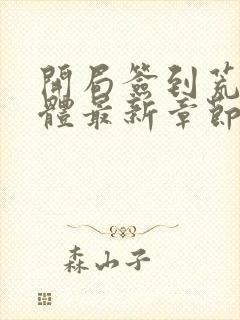 開局簽到荒
體最新章節
森山子